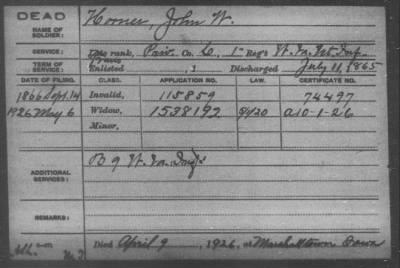 DEAD
NAME OF SOLDIER:
Horner, John W.
SERVICE:
rank, Priv. Co. C, 1" Reg't Vt. Inf.
TERM OF SERVICE:
Enlisted , 1 Discharged July 11, 1865
DATE OF FILING. CLASS. APPLICATION NO. LAW. CERTIFICATE NO.
1866 Sept. 14 Invalid, 115859 74497
1926 May 6 Widow, 1538192 5/1/20 a10-1-26
Minor,
ADDITIONAL SERVICES:
B 9
REMARKS:
Died April 9, 1926, at Marshalltown Iowa